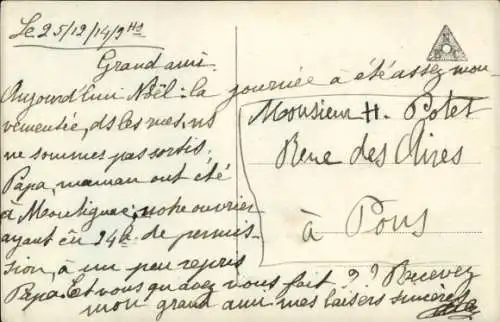 Le 25/12/14/9Hs
Grand ami.
Aujourd'hui Noël : la journée a été assez mou
vementée, ds les rues, ns
ne sommes pas sortis,
Papa, maman ont été
à Montignac, notre ouvrier
ayant eu 24h. de permis-
sion, a un peu repris
Papa. Et vous qu'avez vous fait ?? Recevez
mon grand ami mes baisers sincères
Monsieur H. Potet
Rue des Aires
à Pons